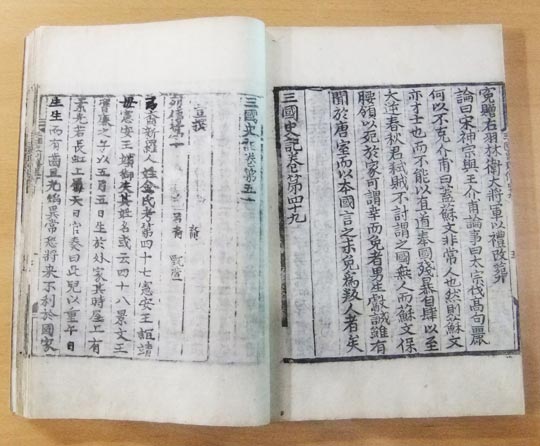 寃贈右羽林衛大將軍以禮改葬
論曰宋神宗與王介甫論事曰太宗伐高句麗
何以不克介甫曰蓋蘇文非常人也然則蘇文
亦才士也而不能以直道奉國殘暴自肆以至
大逆春秋君弑賊不討謂之國無人而蘇文保
腰領以死於家可謂幸而免者男生獻誠雖有
聞於唐室而以本國言之未免爲叛人者矣
三國史記卷第四十九
三國史記卷第五十
宣撰
列傳第十
弓裔新羅人姓金氏考第四十七憲安王誼靖
母憲安王嬪御失其姓名或云四十八景文王
膺廉之子以五月五日生於外家其時屋上有
素光若長虹上屬天日官奏曰此兒以重午日
生生而有齒且光焰異常恐將來不利於國家